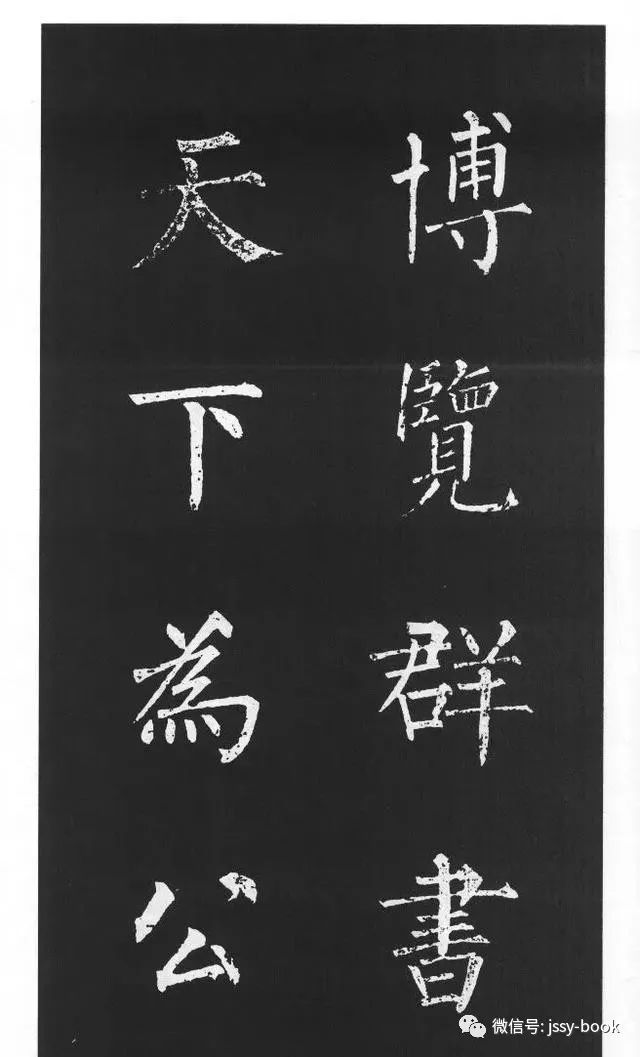 博覽群書
天下為公
微信号: jssy-book